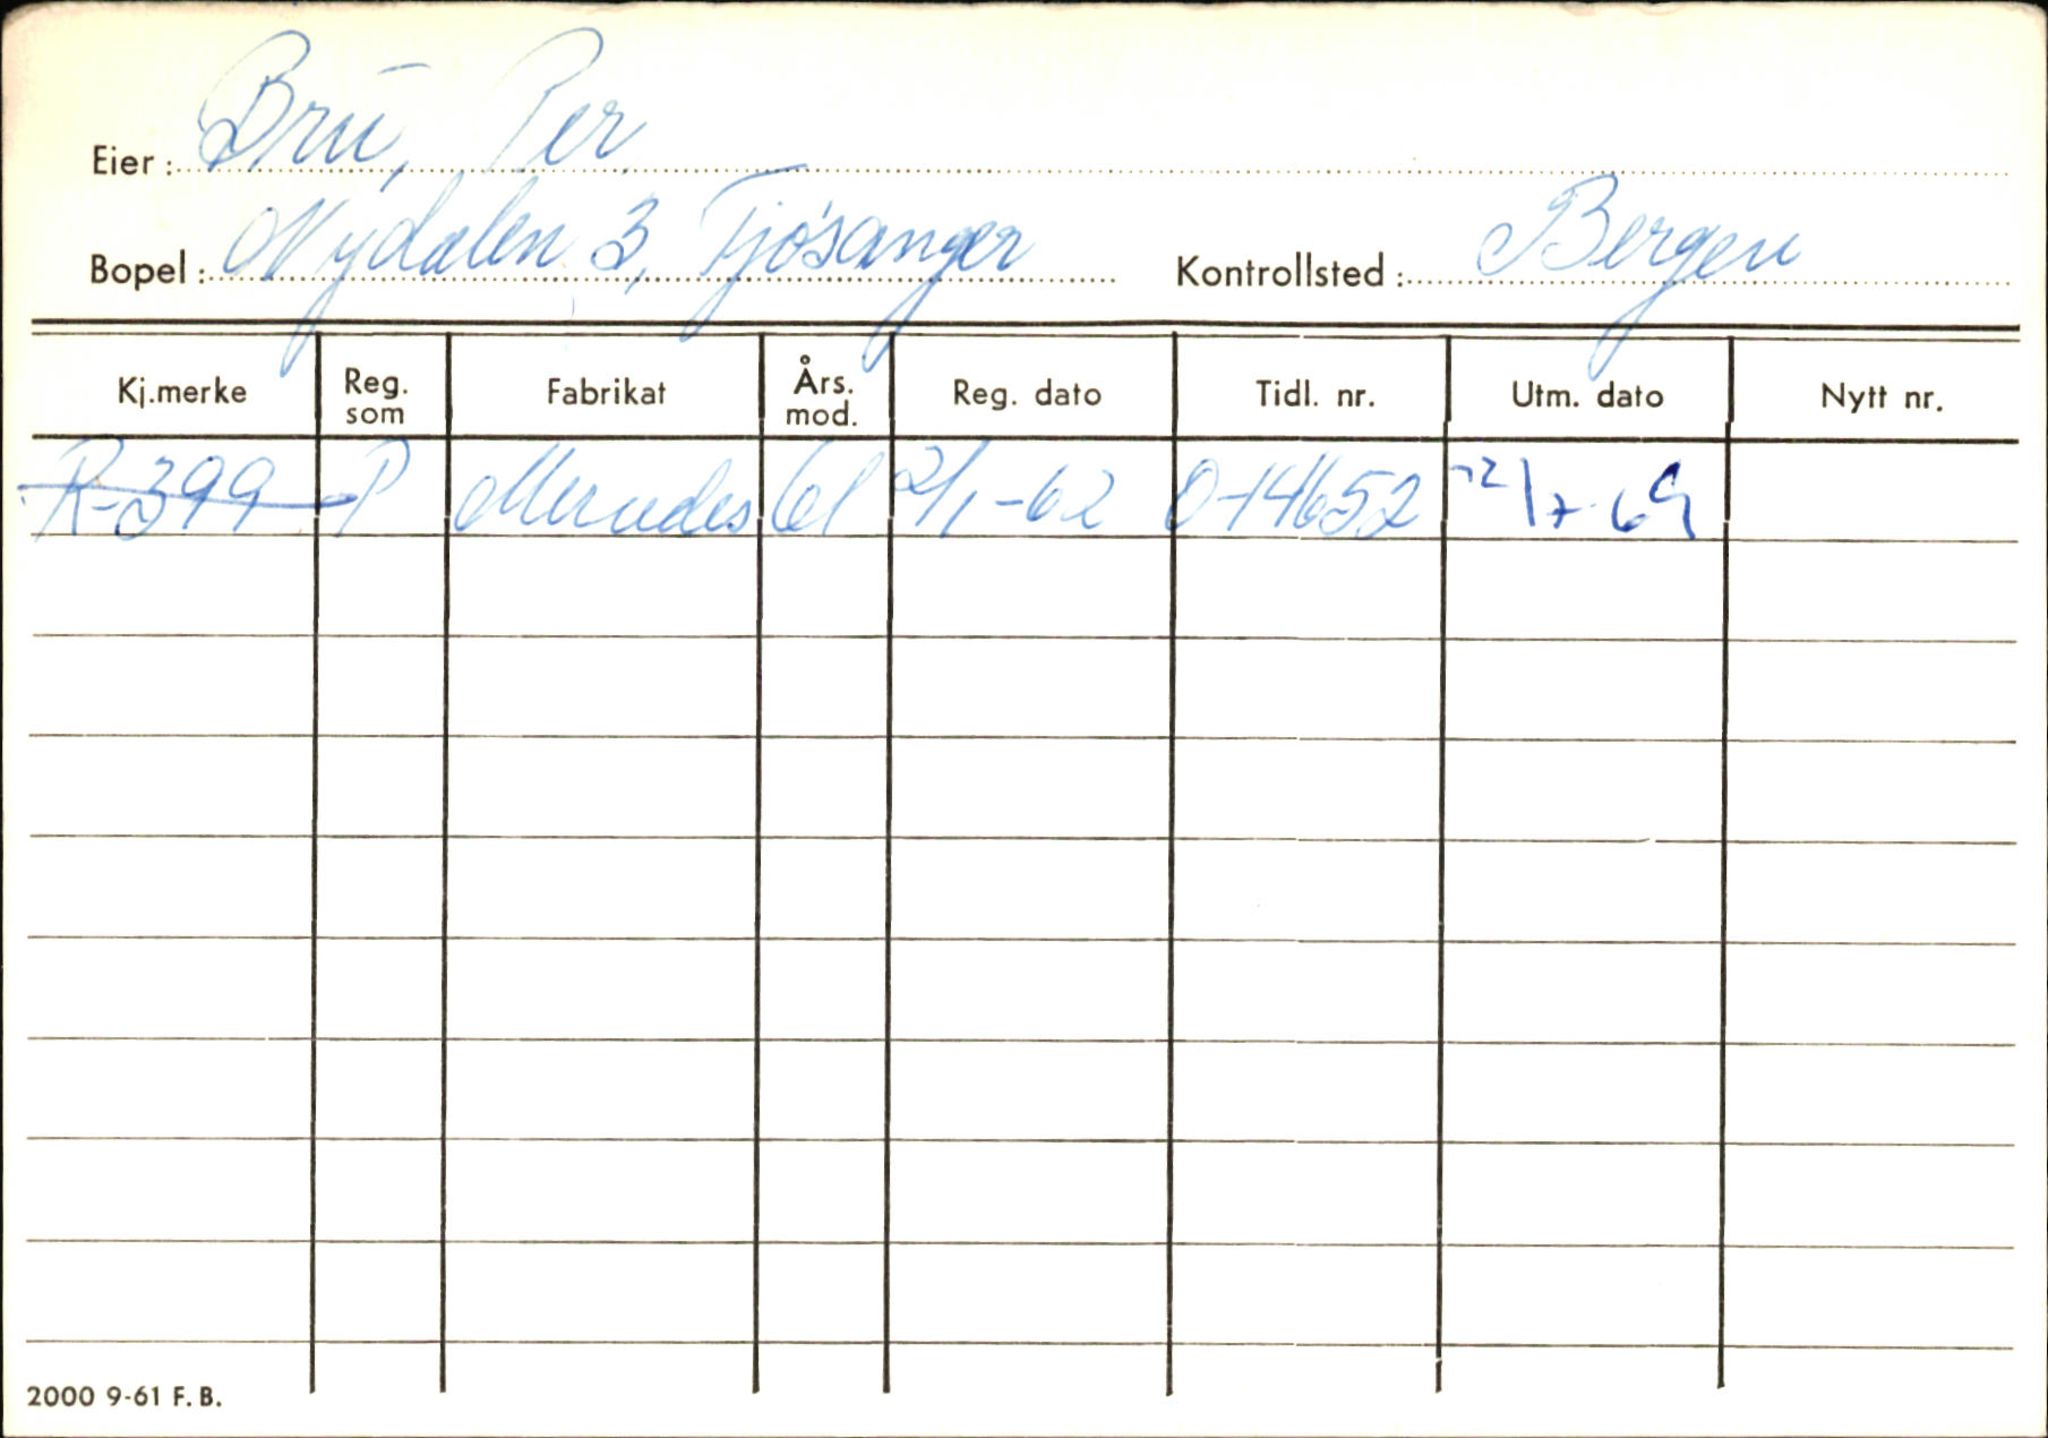 Eier: Bru, Per
Bopel: Nydalen 3, Fjøsanger Kontrollsted: Bergen
Kj.merke Reg. som Fabrikat Års. mod. Reg. dato Tidl. nr. Utm. dato Nytt nr.
R-399 P Mercedes 61 2/1-62 O-14652 22/7-69
2000 9-61 F. B.